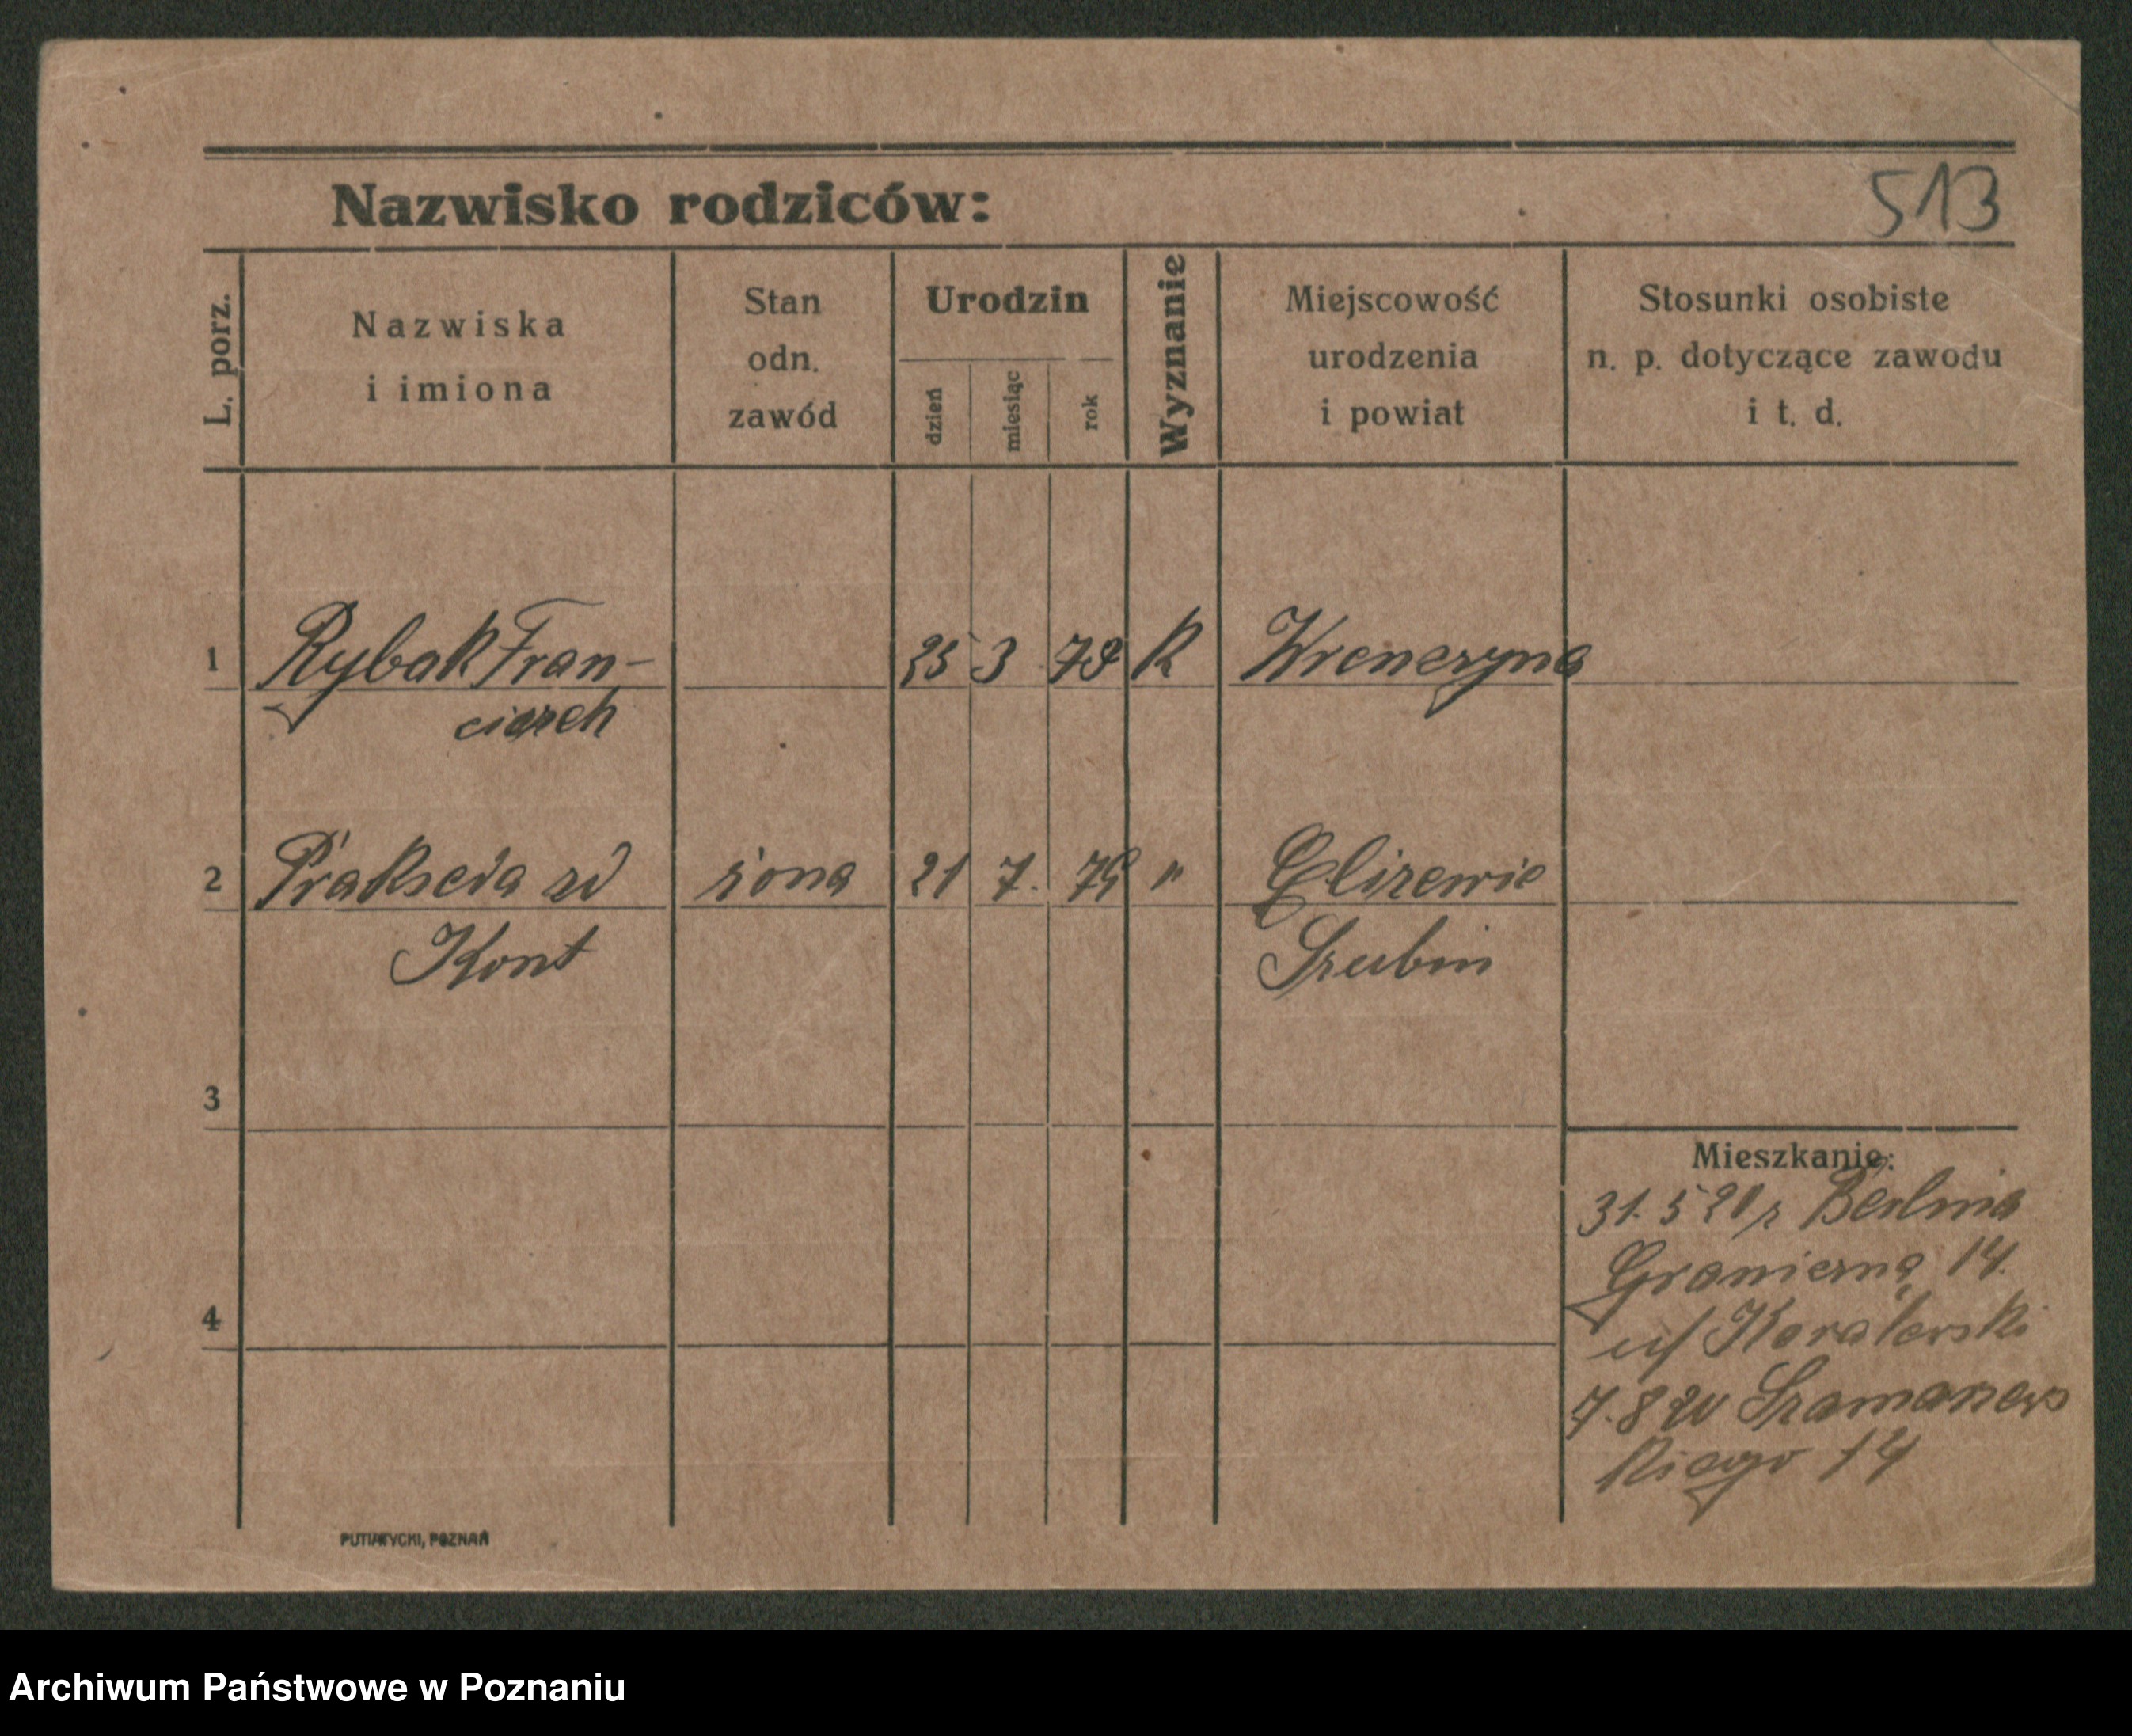 513
Nazwisko rodziców:
L. porz.
Nazwiska
i imiona
Stan
odn.
zawód
Urodzin
dzień
miesiąc
rok
Wyznanie
Miejscowość
urodzenia
i powiat
Stosunki osobiste
n. p. dotyczące zawodu
i t. d.
1 Rybak Fran- 25 3 79 R
ciszek
2 Prakseda zd żona 21 7. 79 "
Kont Szubin
3
4
Mieszkanie:
31. 5 20 z Berlina
Graniczną 14.
7. 8 20 Szamarzews
kiego 14
PUTIATYCKI, POZNAŃ
Archiwum Państwowe w Poznaniu